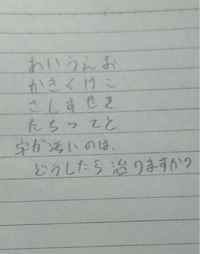 あいうえお
かきくけこ
さしすせそ
たちつてと
字が汚いのは、
どうしたら治りますか?